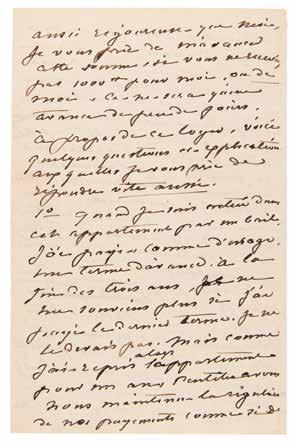 aussi rigoureuse que
Je vous prie de m'avancer
cette somme, si vous ne recevez
pas 1000 ff pour moi, ou de
moi. Ce ne sera qu'une
avance de peu de jours.
à propos de ce loyer, voici
quelques questions et explications
auxquelles je vous prie de
répondre vite aussi.
1º Quand je suis entrée dans
cet appartement par un bail,
j'ai payé, comme d'usage,
un terme d'avance. à la
fin des trois ans, je ne
me souviens plus si j'ai
payé le dernier terme. Je ne
le devais pas. Mais comme
j'ai repris alors l'appartement
pour un an, peut-être avons
nous maintenu la régularité
de nos payements comme si de